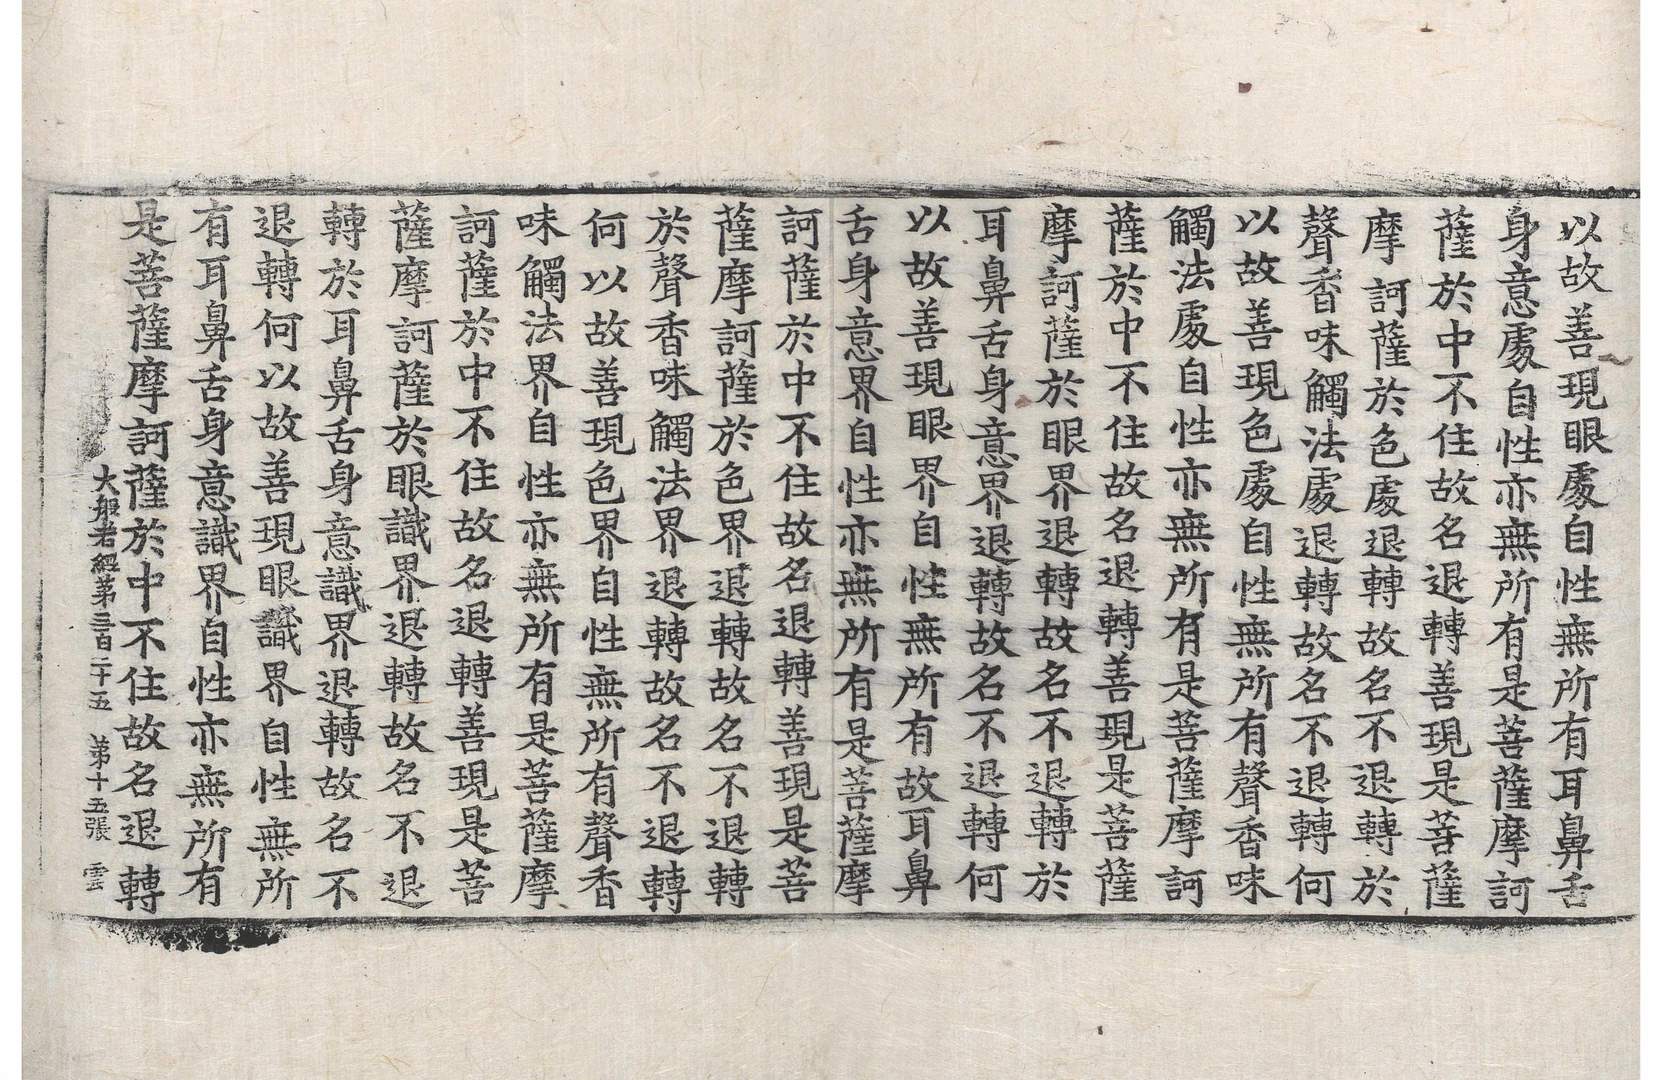 以故善現眼處自性無所有耳鼻舌
身意處自性亦無所有是菩薩摩訶
薩於中不住故名退轉善現是菩薩
摩訶薩於色處退轉故名不退轉於
聲香味觸法處退轉故名不退轉何
以故善現色處自性無所有聲香味
觸法處自性亦無所有是菩薩摩訶
薩於中不住故名退轉善現是菩薩
摩訶薩於眼界退轉故名不退轉於
耳鼻舌身意界退轉故名不退轉何
以故善現眼界自性無所有故耳鼻
舌身意界自性亦無所有是菩薩摩
訶薩於中不住故名退轉善現是菩
薩摩訶薩於色界退轉故名不退轉
於聲香味觸法界退轉故名不退轉
何以故善現色界自性無所有聲香
味觸法界自性亦無所有是菩薩摩
訶薩於中不住故名退轉善現是菩
薩摩訶薩於眼識界退轉故名不退
轉於耳鼻舌身意識界退轉故名不
退轉何以故善現眼識界自性無所
有耳鼻舌身意識界自性亦無所有
是菩薩摩訶薩於中不住故名退轉
大般若經第三百二十五 第十五張 雲